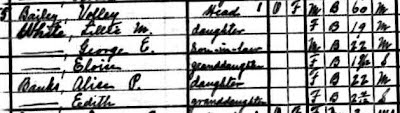 5 Bailey, Volley Head 1 O F M B 60 M
White, Lillie M. daughter F B 19 M
——, George E. son-in-law M B 22 M
——, Eloise granddaughter F B S
Banks, Alice P. daughter F B 22 M
——, Edith granddaughter F B S